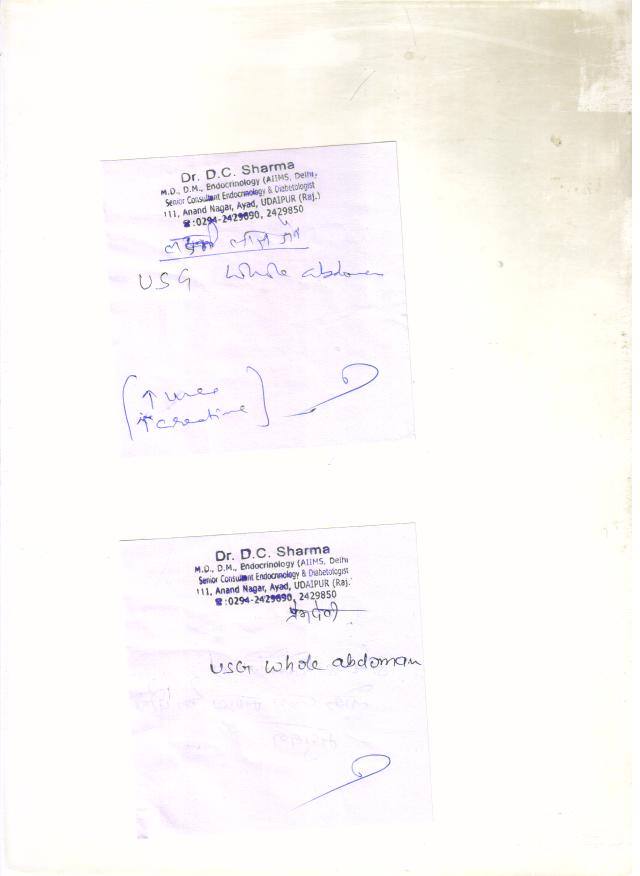 Dr. D.C. Sharma
M.D., D.M., Endocrinology (AIIMS, Delhi,
Senior Consultant Endocrinology & Diabetologist
111, Anand Nagar, Ayad, UDAIPUR (Raj.)
☎:0294-2429690, 2429850
लाल
USG whole abdomen
↑ urea
↑ creatine
Dr. D.C. Sharma
M.D., D.M., Endocrinology (AIIMS, Delhi
Senior Consultant Endocrinology & Diabetologist
111, Anand Nagar, Ayad, UDAIPUR (Raj.
☎:0294-2429690, 2429850
प्रेमदेवी
USG whole abdoman